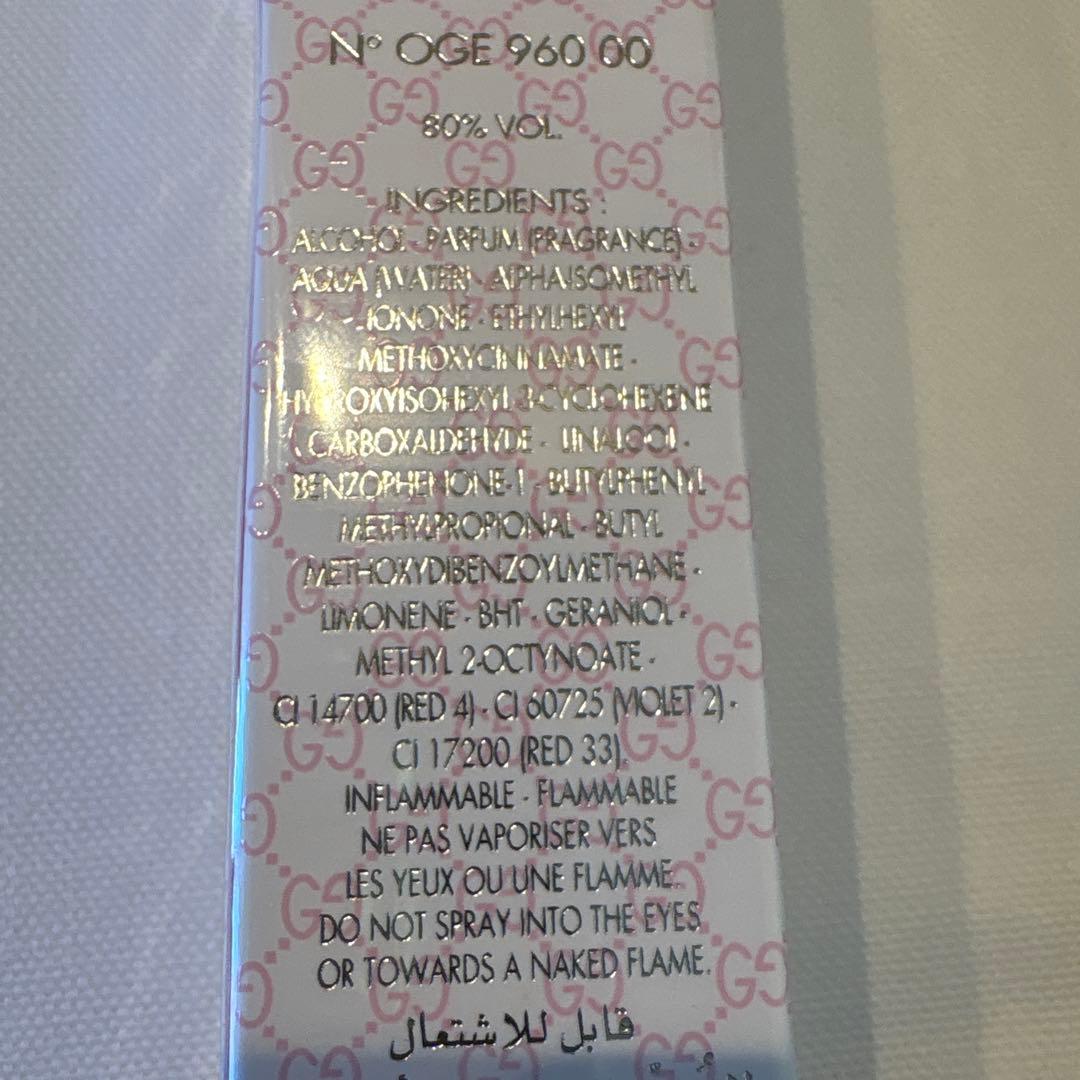 N° OGE 960 00
80% VOL.
INGREDIENTS :
ALCOHOL - PARFUM (FRAGRANCE) -
AQUA (WATER) - ALPHA-ISOMETHYL
IONONE - ETHYLHEXYL
METHOXYCINNAMATE -
HYDROXYISOHEXYL 3-CYCLOHEXENE
CARBOXALDEHYDE - LINALOOL -
BENZOPHENONE-1 - BUTYLPHENYL
METHYLPROPIONAL - BUTYL
METHOXYDIBENZOYLMETHANE -
LIMONENE - BHT - GERANIOL -
METHYL 2-OCTYNOATE -
CI 14700 (RED 4) - CI 60725 (VIOLET 2) -
CI 17200 (RED 33).
INFLAMMABLE - FLAMMABLE
NE PAS VAPORISER VERS
LES YEUX OU UNE FLAMME.
DO NOT SPRAY INTO THE EYES
OR TOWARDS A NAKED FLAME.
قابل للاشتعال